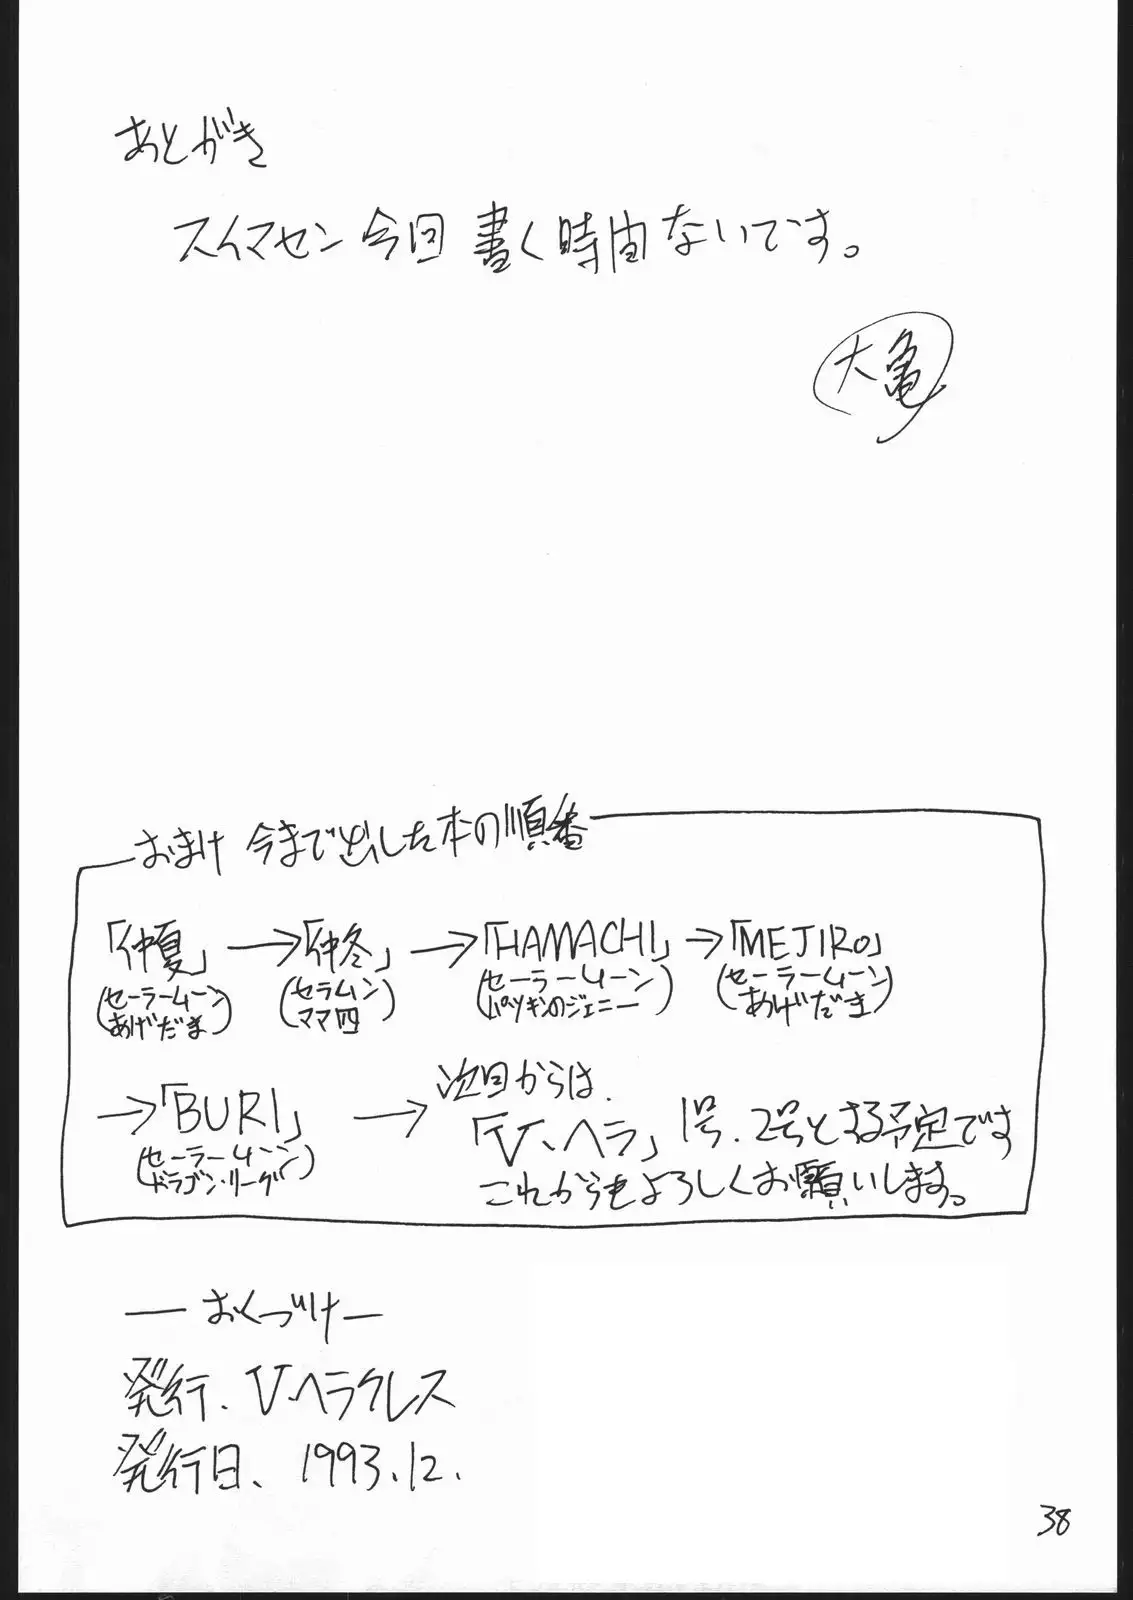 あとがき
スイマセン今回書く時間ないです。
大亀
おまけ 今まで出した本の順番
「仲夏」→「仲冬」→「HAMACHI」→「MEJIRO」
(セーラームーン あげだま) (セラムン ママ四) (セーラームーン パツキンのジェニー) (セーラームーン あげだま)
→「BURI」→ 次回からは、
(セーラームーン ドラゴン・リーグ)
「V、ヘラ」1号、2号とする予定です
これからもよろしくお願いします。
―おくづけ―
発行、V、ヘラクレス
発行日、1993.12.
38